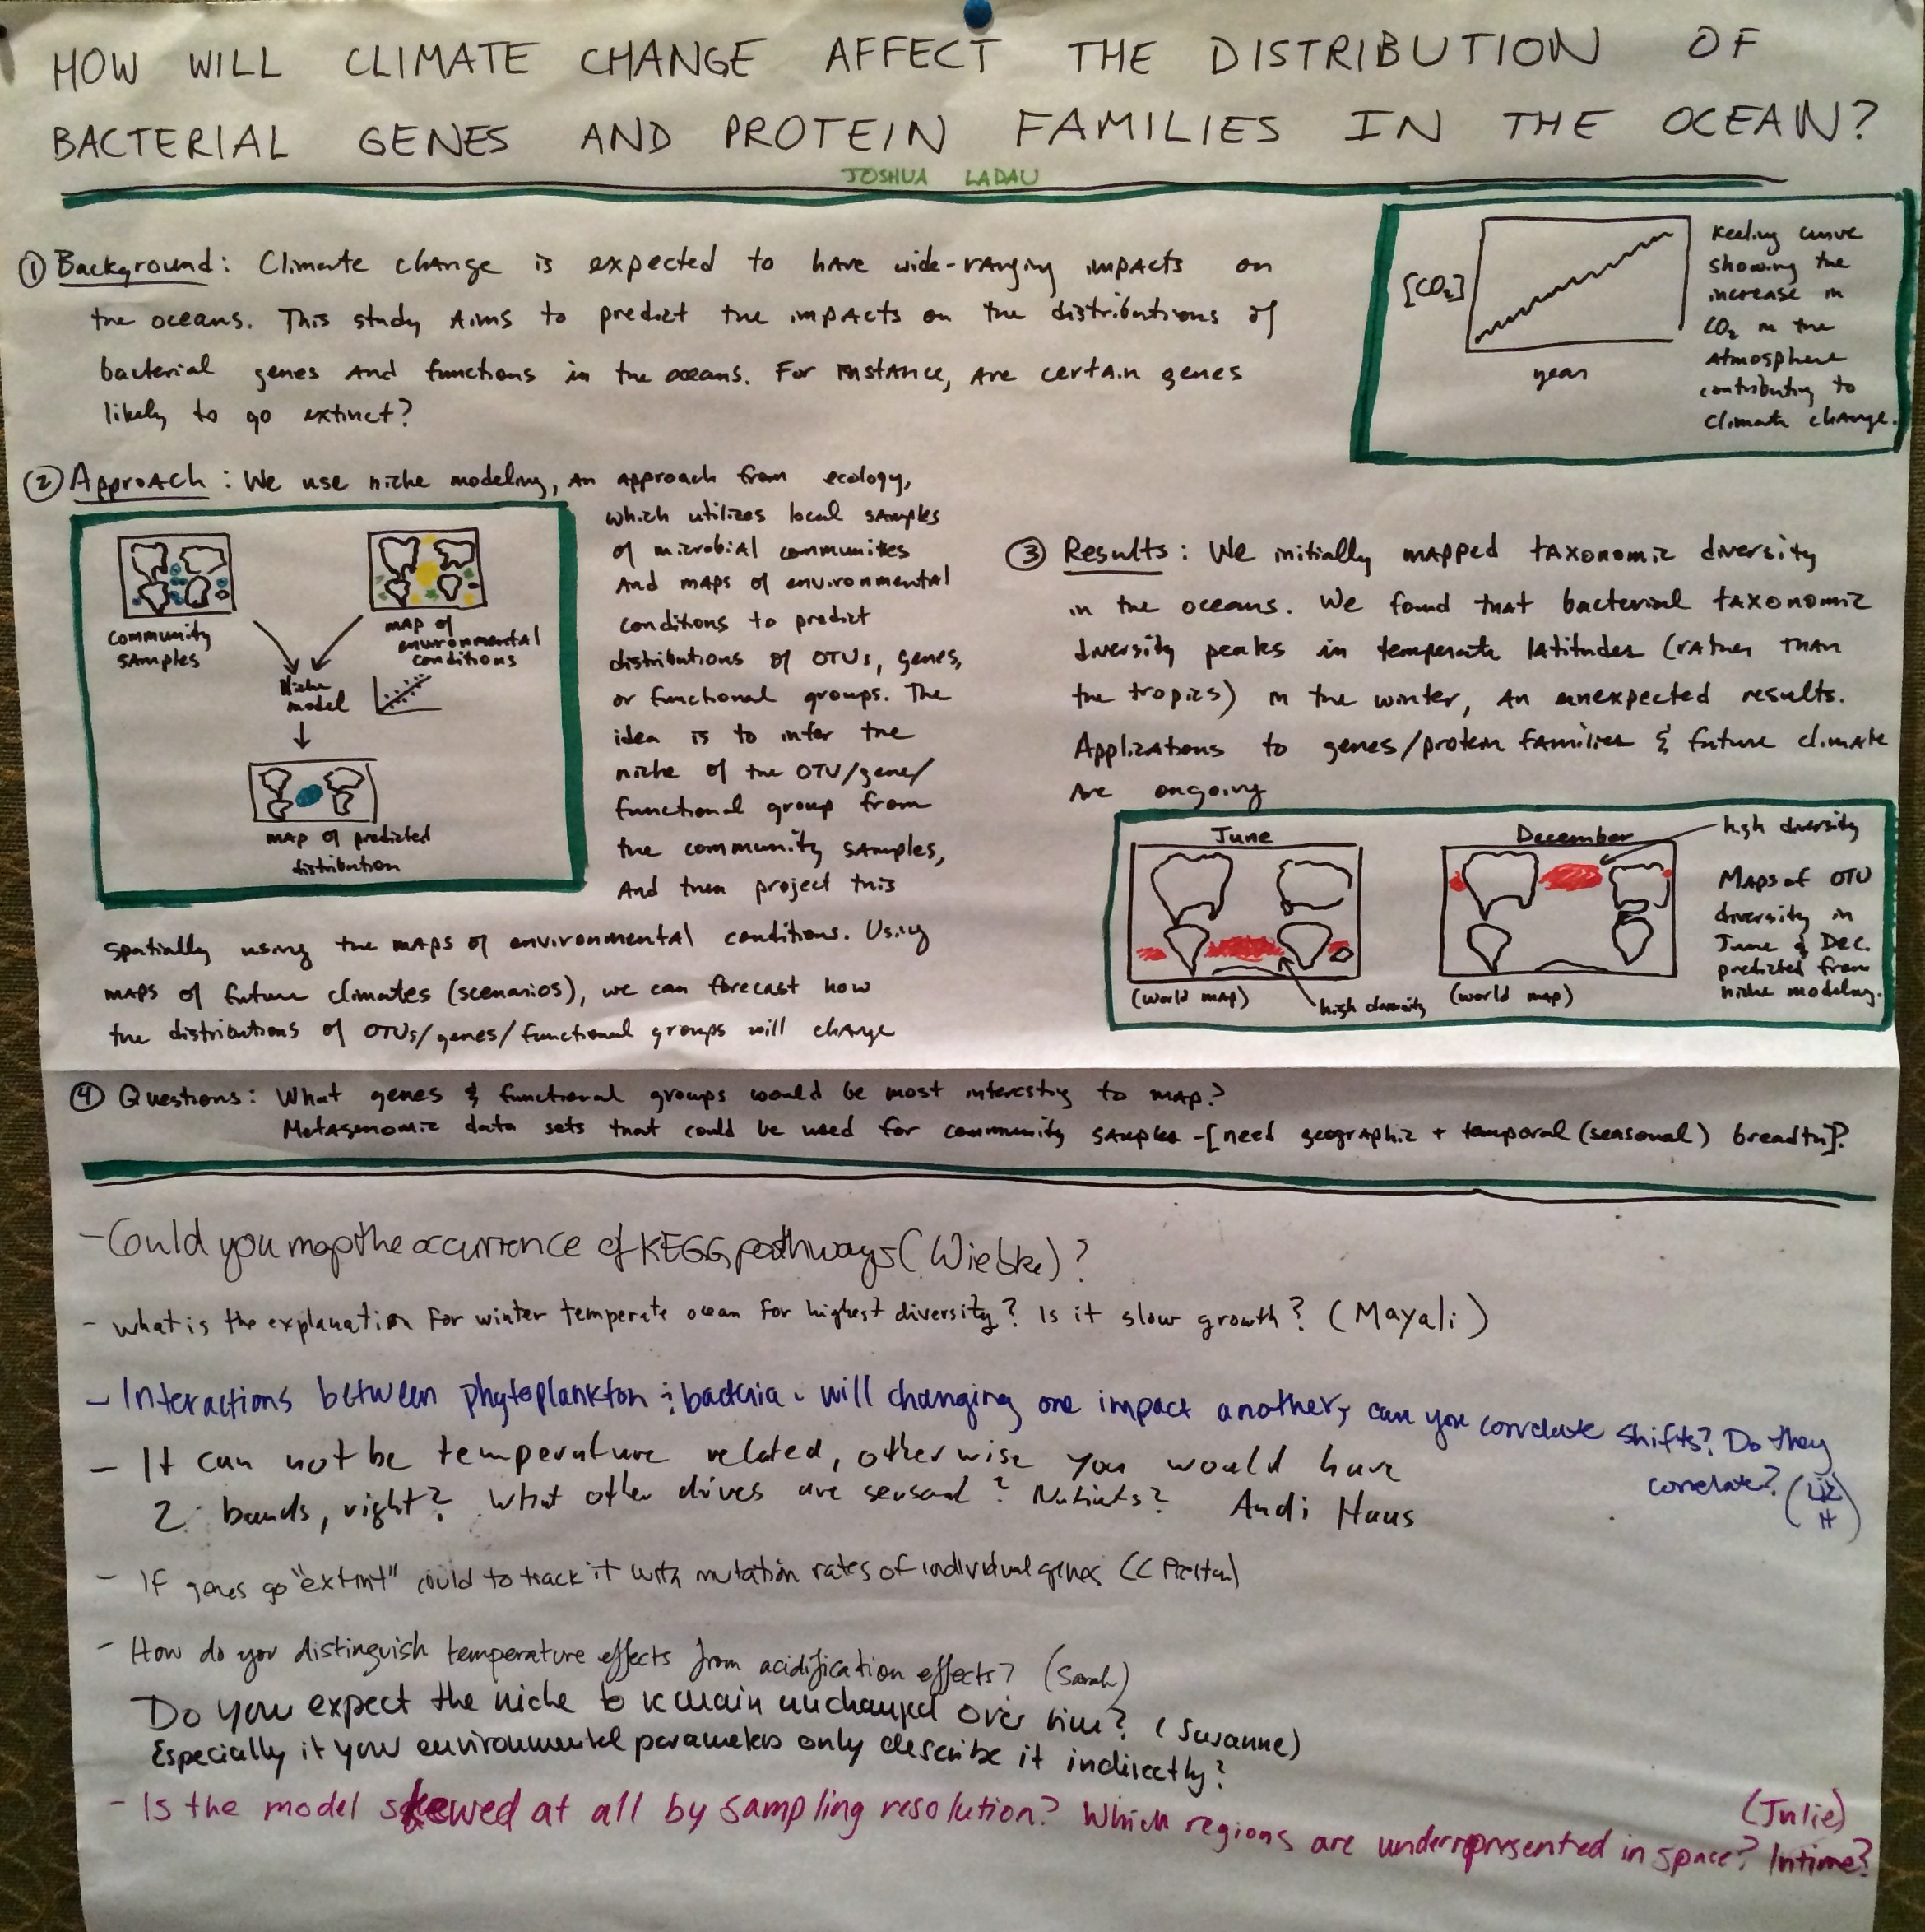 HOW WILL CLIMATE CHANGE AFFECT THE DISTRIBUTION OF
BACTERIAL GENES AND PROTEIN FAMILIES IN THE OCEAN?
JOSHUA LADAU
① Background: Climate change is expected to have wide-ranging impacts on
the oceans. This study aims to predict the impacts on the distributions of
bacterial genes and functions in the oceans. For instance, are certain genes
likely to go extinct?
[CO₂]
year
Keeling curve
showing the
increase in
CO₂ in the
atmosphere
contributing to
climate change.
② Approach: We use niche modeling, an approach from ecology,
which utilizes local samples
of microbial communites
and maps of environmental
conditions to predict
distributions of OTUs, genes,
or functional groups. The
idea is to infer the
niche of the OTU/gene/
functional group from
the community samples,
and then project this
spatially using the maps of environmental conditions. Using
maps of future climates (scenarios), we can forecast how
the distributions of OTUs/genes/functional groups will change
community
samples
map of
environmental
conditions
Niche
model
map of predicted
distribution
③ Results: We initially mapped taxonomic diversity
in the oceans. We found that bacterial taxonomic
diversity peaks in temperate latitudes (rather than
the tropics) in the winter, an unexpected results.
Applications to genes/protein families & future climate
are ongoing
June
December
high diversity
(world map)
high diversity
(world map)
Maps of OTU
diversity in
June & Dec.
predicted from
niche modeling.
④ Questions: What genes & functional groups would be most interesting to map?
Metagenomic data sets that could be used for community samples -[need geographic + temporal (seasonal) breadth]?
- Could you map the occurrence of KEGG pathways (Wiebke)?
- what is the explanation for winter temperate ocean for highest diversity? Is it slow growth? (Mayali)
- Interactions between phytoplankton & bacteria. will changing one impact another, can you correlate shifts? Do they
correlate? (Liz
H)
- It can not be temperature related, otherwise you would have
2 bands, right? What other drives are sensonal? Nutrients? Andi Haas
- If genes go "extint" could to track it with mutation rates of individual genes (C Preston)
- How do you distinguish temperature effects from acidification effects? (Sarah)
Do you expect the niche to remain unchanged over time? (Susanne)
Especially if your environmental parameters only describe it indirectly?
- Is the model skewed at all by sampling resolution? Which regions are underrepresented in space? In time?
(Julie)